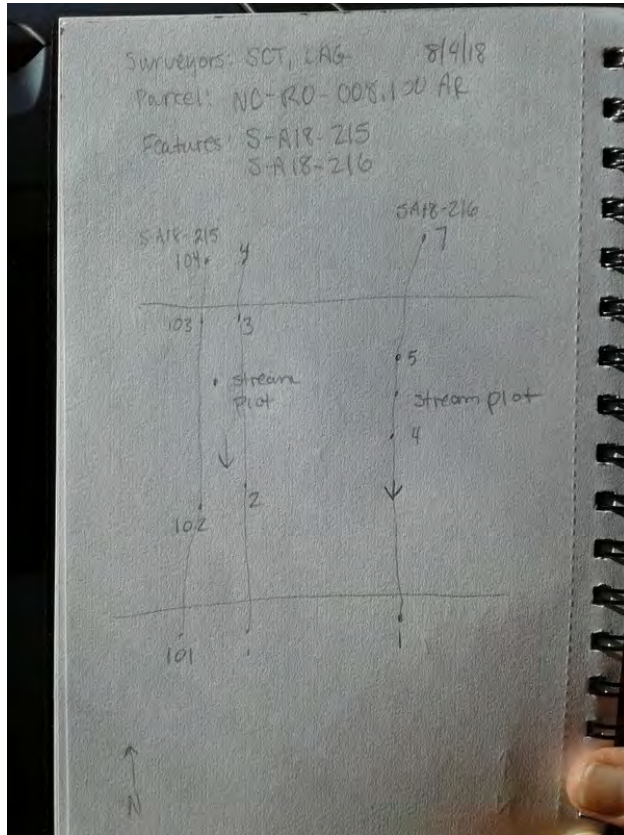 Surveyors: SCT, LAG 8/4/18
Parcel: NC-RO-008.100 AR
Features: S-A18-215
S-A18-216
SA18-216
7
S-A18-215
104 4
103 3
5
stream
plot
stream plot
4
2
102
101
1
N